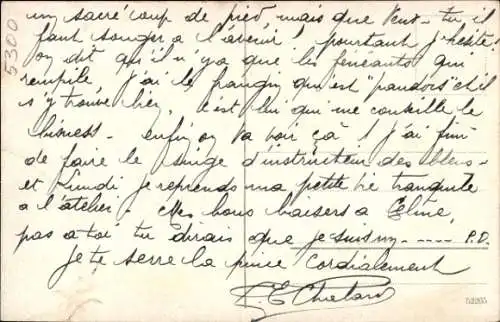 un sacré coup de pied, mais que veux-tu, il
faut songer a l'avenir! pourtant j'hésite!
on dit qu'il n'ya que les fénéants qui
rempile j'ai le frangin qui est "pandore" et il
s'y trouve bien, c'est lui qui me conseille le
bisness - enfin on va voir ça! j'ai fini
de faire le singe d'instructeur des bleus -
et Lundi je reprends ma petite vie tranquille
a l'atelier. Mes bons baisers a Céline,
pas a toi tu dirais que je suis un - ---- P.D.
Je te serre la pince cordialement
5300
52265